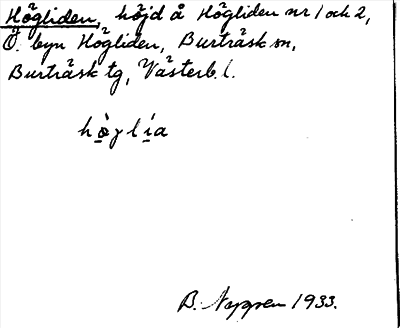 Högliden, höjd å Högliden nr 1 och 2,
Ö. byn Högliden, Burträsk sn,
Burträsk tg, Västerb. l.
högl
B.
1933.